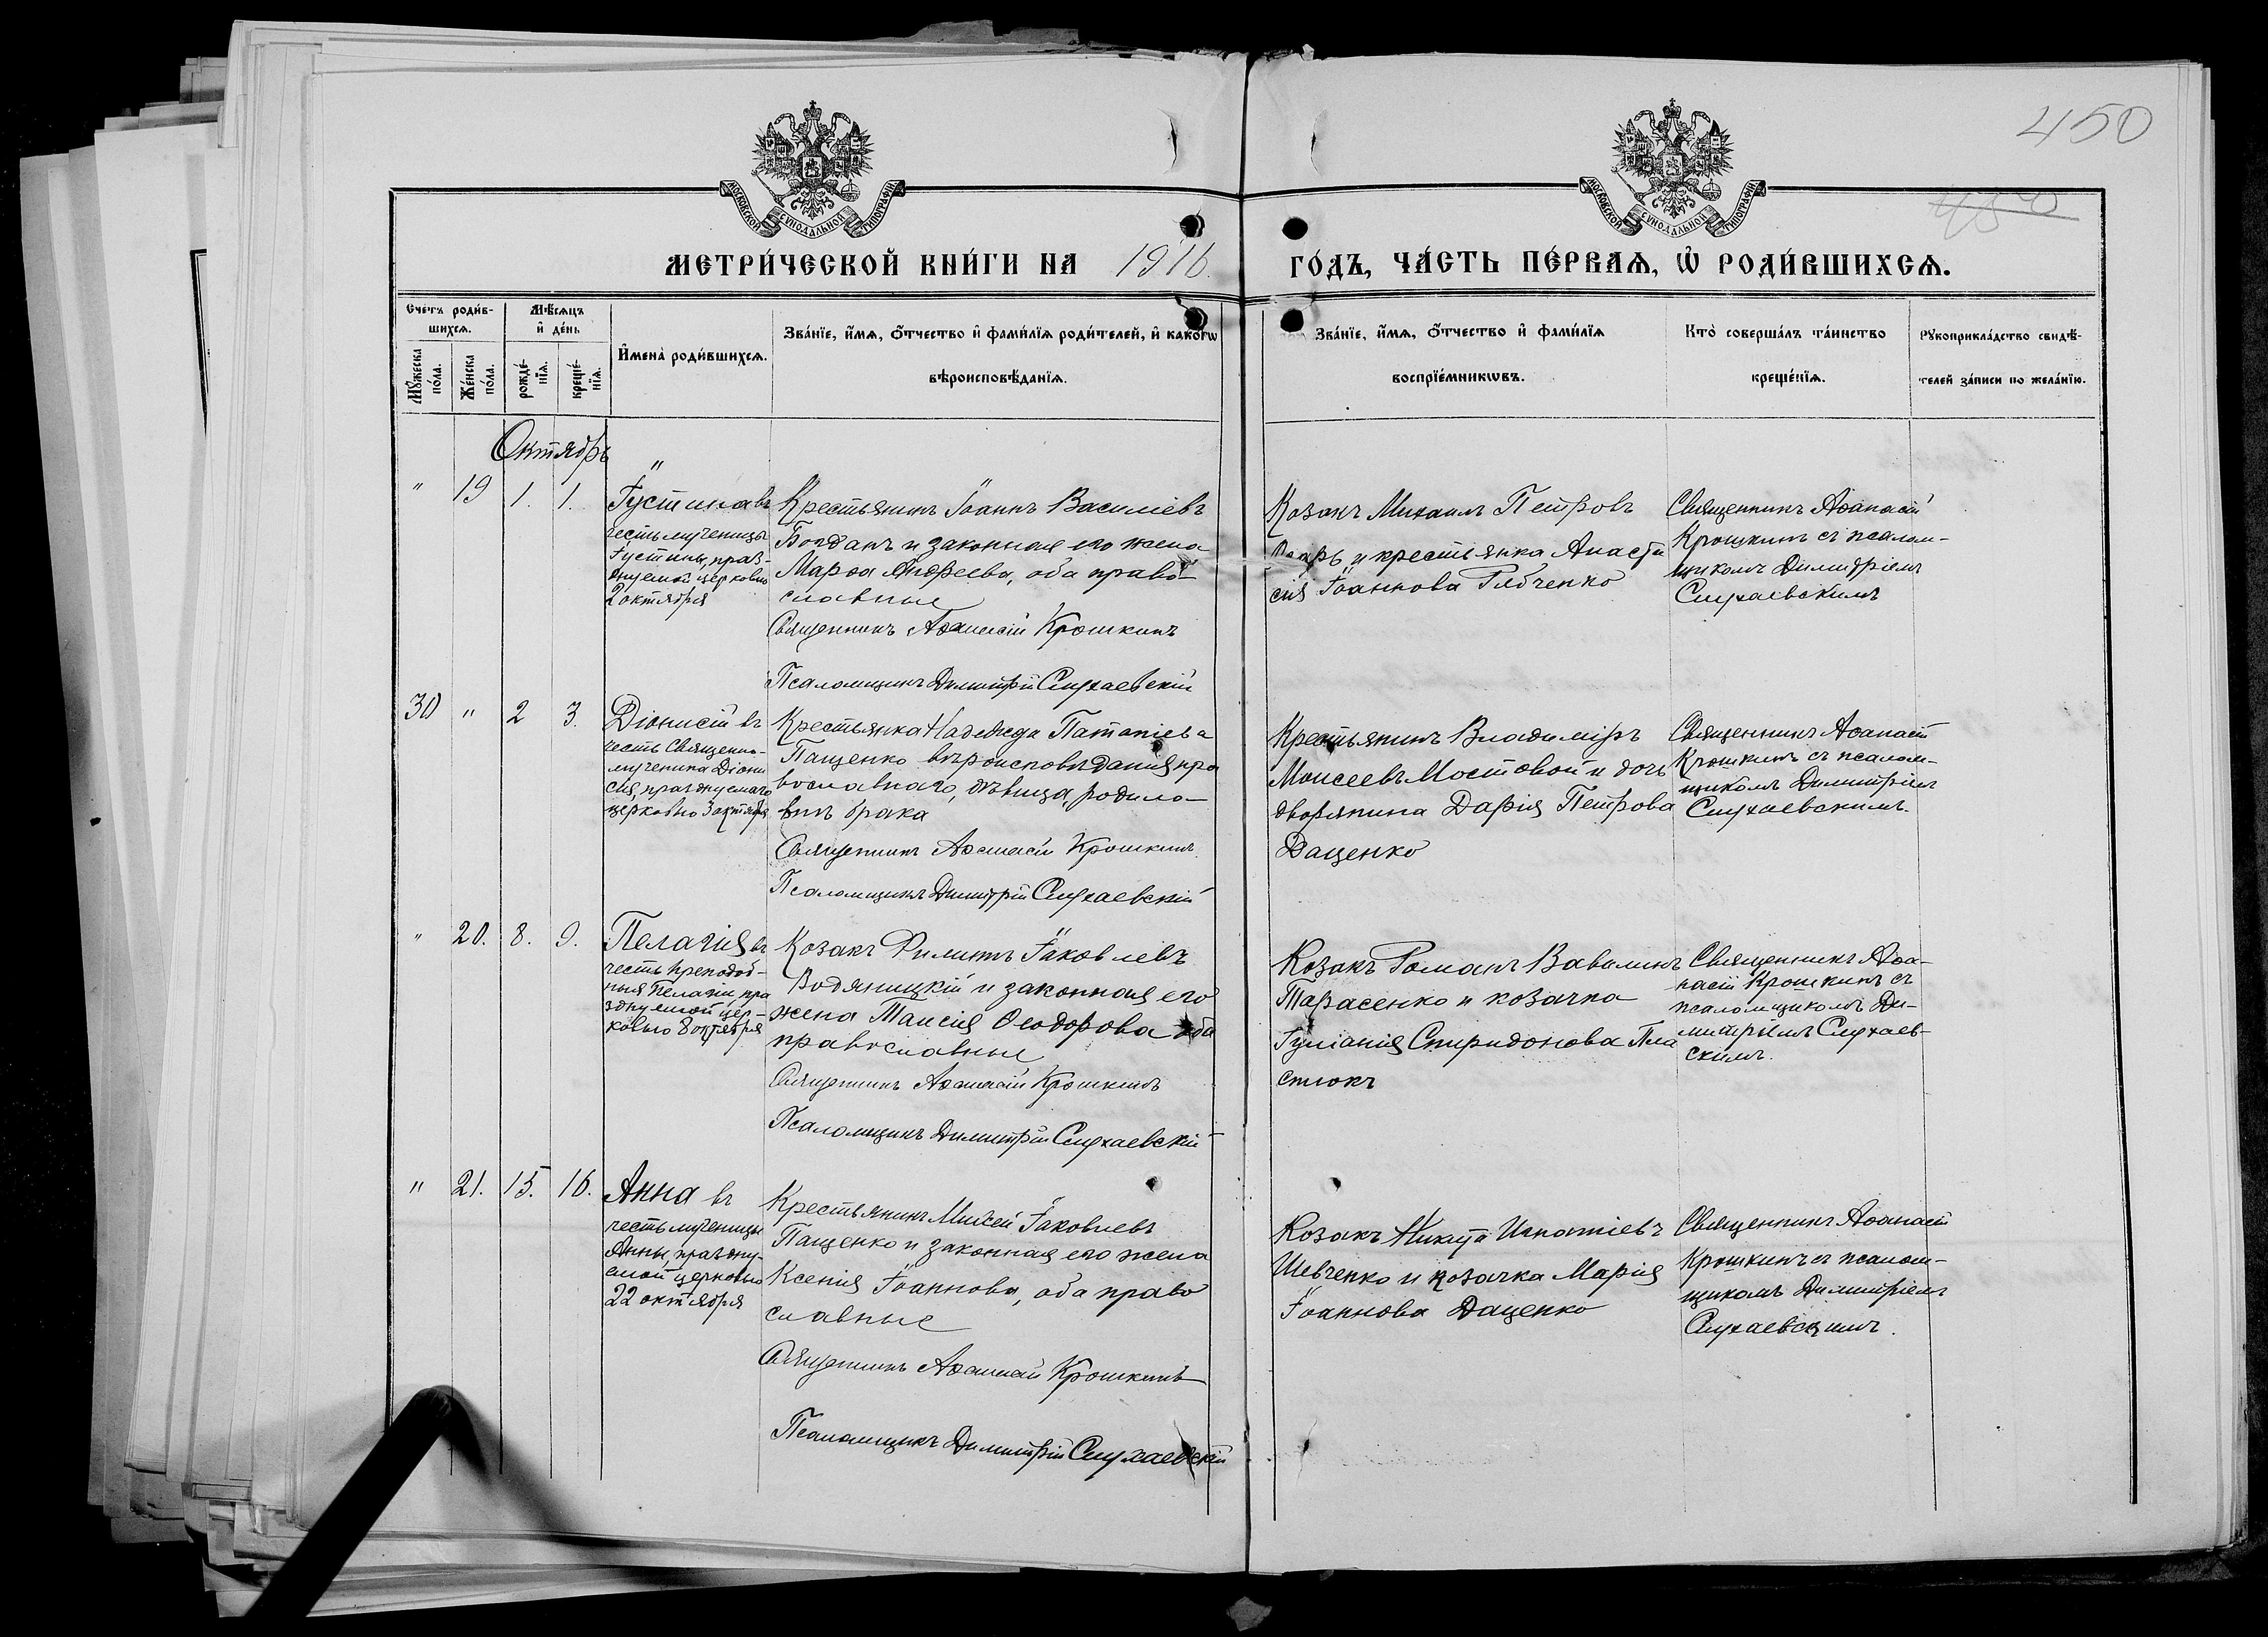 450
450
МОСКОВСКОЙ СѴНОДАЛЬНОЙ ТИПОГРАФІИ
МОСКОВСКОЙ СѴНОДАЛЬНОЙ ТИПОГРАФІИ
МЕТРИ́ЧЕСКОЙ КНИ́ГИ НА 1916. ГО́ДЪ, ЧА́СТЬ ПЕ́РВАѦ, Ѡ҆ РОДИ́ВШИХСѦ.
Счетъ роди́в-
шихсѧ.
Мꙋ́жеска по́ла.
Же́нска по́ла.
Мѣ́сѧцъ
и҆ де́нь
рожде́-
нїѧ.
креще́-
нїѧ.
И҆мена̀ роди́вшихсѧ.
Зва́нїе, и҆́мѧ, ѻ҆́тчество и҆ фами́лїѧ роди́телей, и҆ како́гѡ
вѣроисповѣ́данїѧ.
Зва́нїе, и҆́мѧ, ѻ҆́тчество и҆ фами́лїѧ
воспрїе́мникѡвъ.
Кто̀ соверша́лъ та́инство
креще́нїѧ.
Рꙋкоприкла́дство свидѣ́-
телей за́писи по жела́нїю.
Октябрь
" 19 1. 1.
Іустина въ
честь мученицы
Іустины, праз-
днуемой церковію
2 октября
Крестьянинъ Іоаннъ Василіевъ
Богданъ и законная его жена
Марѳа Андреева, оба право-
славные
Священникъ Аѳанасій Крошкинъ
Псаломщикъ Димитрій Слухаевскій
Козакъ Михаилъ Петровъ
и крестьянка Анаста
сія Іоаннова Рябченко
Священникъ Аѳанасій
Крошкинъ съ псалом-
щикомъ Димитріемъ
Слухаевскимъ
30 " 2 3.
Діонисій въ
честь Священно-
мученика Діони
сія, празднуемаго
церковью 3 октября
Крестьянка Надежда
Пащенко вѣроисповѣданія пра
вославнаго, дѣвица, родила
внѣ брака
Священникъ Аѳанасій Крошкинъ
Псаломщикъ Димитрій Слухаевскій
Крестьянинъ Владиміръ
Моисеевъ Мостовой и дочь
дворянина Дарія Петрова
Даценко
Священникъ Аѳанасій
Крошкинъ съ псалом-
щикомъ Димитріемъ
Слухаевскимъ.
" 20. 8. 9.
Пелагія въ
честь преподоб-
ныя Пелагіи пра
зднуемой цер-
ковью 8 октября
Козакъ Филиппъ Іаковлевъ
Водяницкій и законная его
жена Таисія Ѳеодорова оба
православные
Священникъ Аѳанасій Крошкинъ
Псаломщикъ Димитрій Слухаевскій
Козакъ Романъ Вавилинъ
Тарасенко и козачка
Іуліанія Спиридонова Пла
стюкъ
Священникъ Аѳа-
насій Крошкинъ съ
псаломщикомъ Ди-
митріемъ Слухаев-
скимъ.
" 21. 15. 16.
Анна въ
честь мученицы
Анны, праздну-
емой церковью
22 октября
Крестьянинъ Іаковлевъ
Пащенко и законная его жена
Ксенія Іоаннова, оба право
славные
Священникъ Аѳанасій Крошкинъ
Псаломщикъ Димитрій Слухаевскій
Козакъ Никита Игнатіевъ
Шевченко и козачка Марія
Іоаннова Даценко
Священникъ Аѳанасій
Крошкинъ съ псалом-
щикомъ Димитріемъ
Слухаевскимъ.